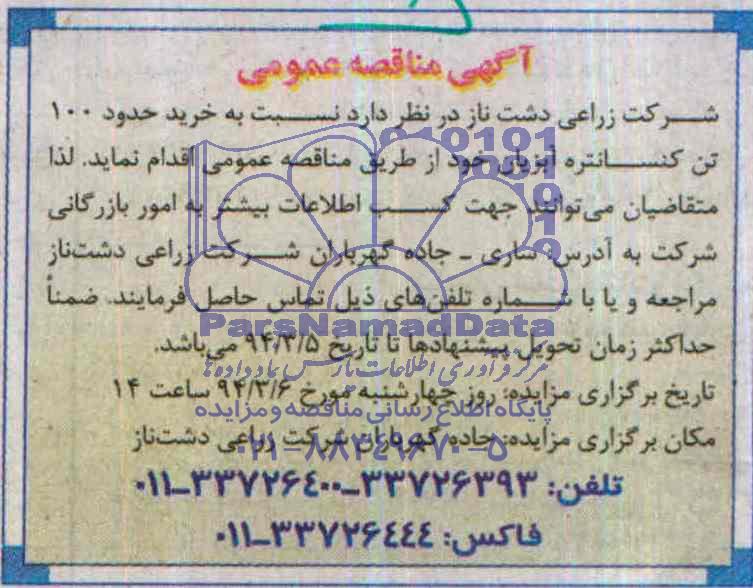 آگهی مناقصه عمومی
شرکت زراعی دشت ناز در نظر دارد نسبت به خرید حدود ۱۰۰
تن کنسانتره آبزیان خود از طریق مناقصه عمومی اقدام نماید. لذا
متقاضیان می‌توانند جهت کسب اطلاعات بیشتر به امور بازرگانی
شرکت به آدرس: ساری - جاده گهرباران شرکت زراعی دشت‌ناز
مراجعه و یا با شماره تلفن‌های ذیل تماس حاصل فرمایند. ضمناً
حداکثر زمان تحویل پیشنهادها تا تاریخ ۹۴/۳/۵ می‌باشد.
تاریخ برگزاری مزایده: روز چهارشنبه مورخ ۹۴/۳/۶ ساعت ۱۴
مکان برگزاری مزایده: جاده گهرباران شرکت زراعی دشت‌ناز
تلفن: ۳۳۷۲۶۳۹۳-۳۳۷۲۶۴۰۰-۰۱۱
فاکس: ۳۳۷۲۶۴۴۴-۰۱۱
ParsNamadData
مرکز فرآوری اطلاعات پارس نماد داده‌ها
پایگاه اطلاع رسانی مناقصه و مزایده
۰۲۱-۸۸۳۴۹۶۷۰-۵